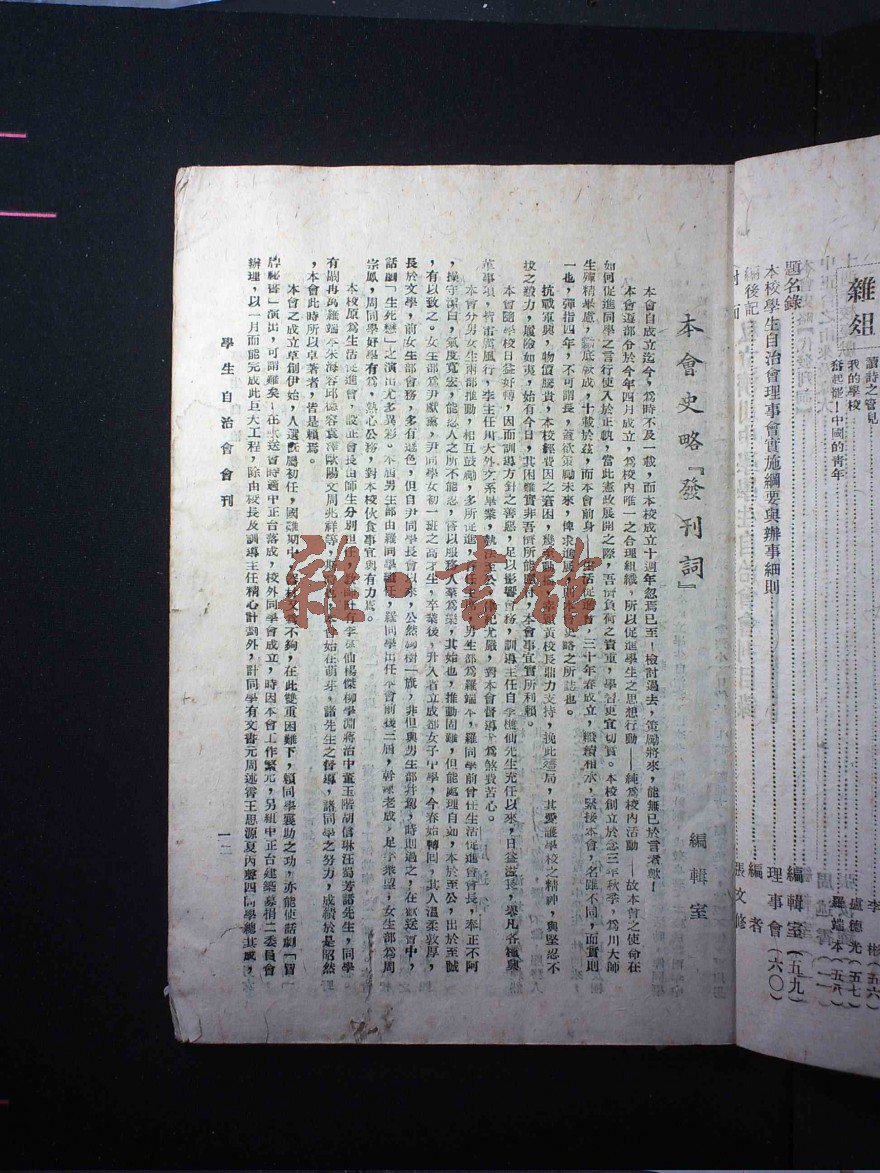 雜俎
讀詩之管見
李彬(五六)
我的學校
盧德光(五七)
奮起罷!中國的青年
羅端本(五八)
題名錄
編輯室(五九)
本校學生自治會理事會實施綱要與辦事細則
理事會(六〇)
編後記
編者
封面
張文修
本會史略『發刊詞』
編輯室
本會自成立迄今,為時不及一載,而本校成立十週年忽焉已至!檢討過去,策勵將來,能無已於言者歟!
本會遵部分於今年四月成立,為校內唯一之合理組織,所以促進學生之思想行動——純為校內活動——故本會之使命在
如何促進同學之言行使入於正軌,當此憲政展開之際,吾儕負荷之責重,學習更宜切實。本校創立於念三年秋季,為川大師
生殫精畢慮,黽底厥成,十載於茲,而本會前身——生活促進會,三十年春成立,繼續相承,緊接本會,名雖不同,而實則
一也,彈指四年,不可謂長,蓋欲策勵未來,俾求進展,則本會史略之所誌也。
抗戰軍興,物價騰貴,本校經費因之窘困,幾至動搖,幸賴黃校長鼎力支持,挽此逆局,其愛護學校之精神,與堅忍不
拔之毅力,履險如夷,始有今日,其困難實非吾儕所能想,本會事宜實所利賴。
本會隨學校日益好轉,因而訓導方針之善惡,足以影響會務,訓導主任自李櫨仙先生充任以來,日益滋長,舉凡各種與
革事項,皆雷厲風行,李主任川大外文系畢業,執法至公,律己尤嚴,對本會督導尤為煞費苦心。
本會分男女生兩部推動,相互鼓勵,多所促進,前任主席,男生部為羅端本,羅同學前曾任生活促進會會長,奉正不阿
,操守潔白,氣度寬宏,能忍人之所不能忍,嘗以服務人羣為樂,其始也,推動困難,但能處理自如,本於至公,出於至誠
,有以致之。女生部為尹獻薰,尹同學女初一班之高才生,卒業後,升入省立成都女子中學,今春始轉回,其人溫柔敦厚,
長於文學,前女生部會務,多有遜色,但自尹同學長會以來,公然獨樹一旗,非但與男生部并駕,時則過之,在歡送會中,
話劇「生死戀」之演出尤多異彩。本屆男生部由羅同學繼任,羅同學出任本會前後三屆,幹練老成,足孚眾望,女生部為周
宗鳳,周同學好學有為,熱心公務,對本校伙食事宜與有力焉。
本校原為生活促進會,設正會長由師生分別担任,按師計有李櫨仙楊傑柳學淵蔣治中董玉階胡信琳汪蜀芳諸先生,同學
有周再禹羅端本朱海容邱德容袁澤歐陽文周兆祥等,斯時也,本會始在萌芽,諸先生之督導,諸同學之努力,成績於是昭然
,本會此時所以卓著者,皆是賴焉。
本會之成立草創伊始,人選既屬初任,國難期中,器材又為不夠,在此雙重困難下,賴同學襄助之功,亦能使話劇「冒
牌秘書」演出,可謂難矣!在水送會時適中正台落成,校外同學會成立,時因本會工作繁冗,另組中正台建築募捐二委員會
辦理,以一月而能完成此巨大工程,除由校長及訓導主任精心計劃外,計同學有文書元周述霄王思源夏丙麐四同學總其成,
學生自治會會刊
一一
雜·書館